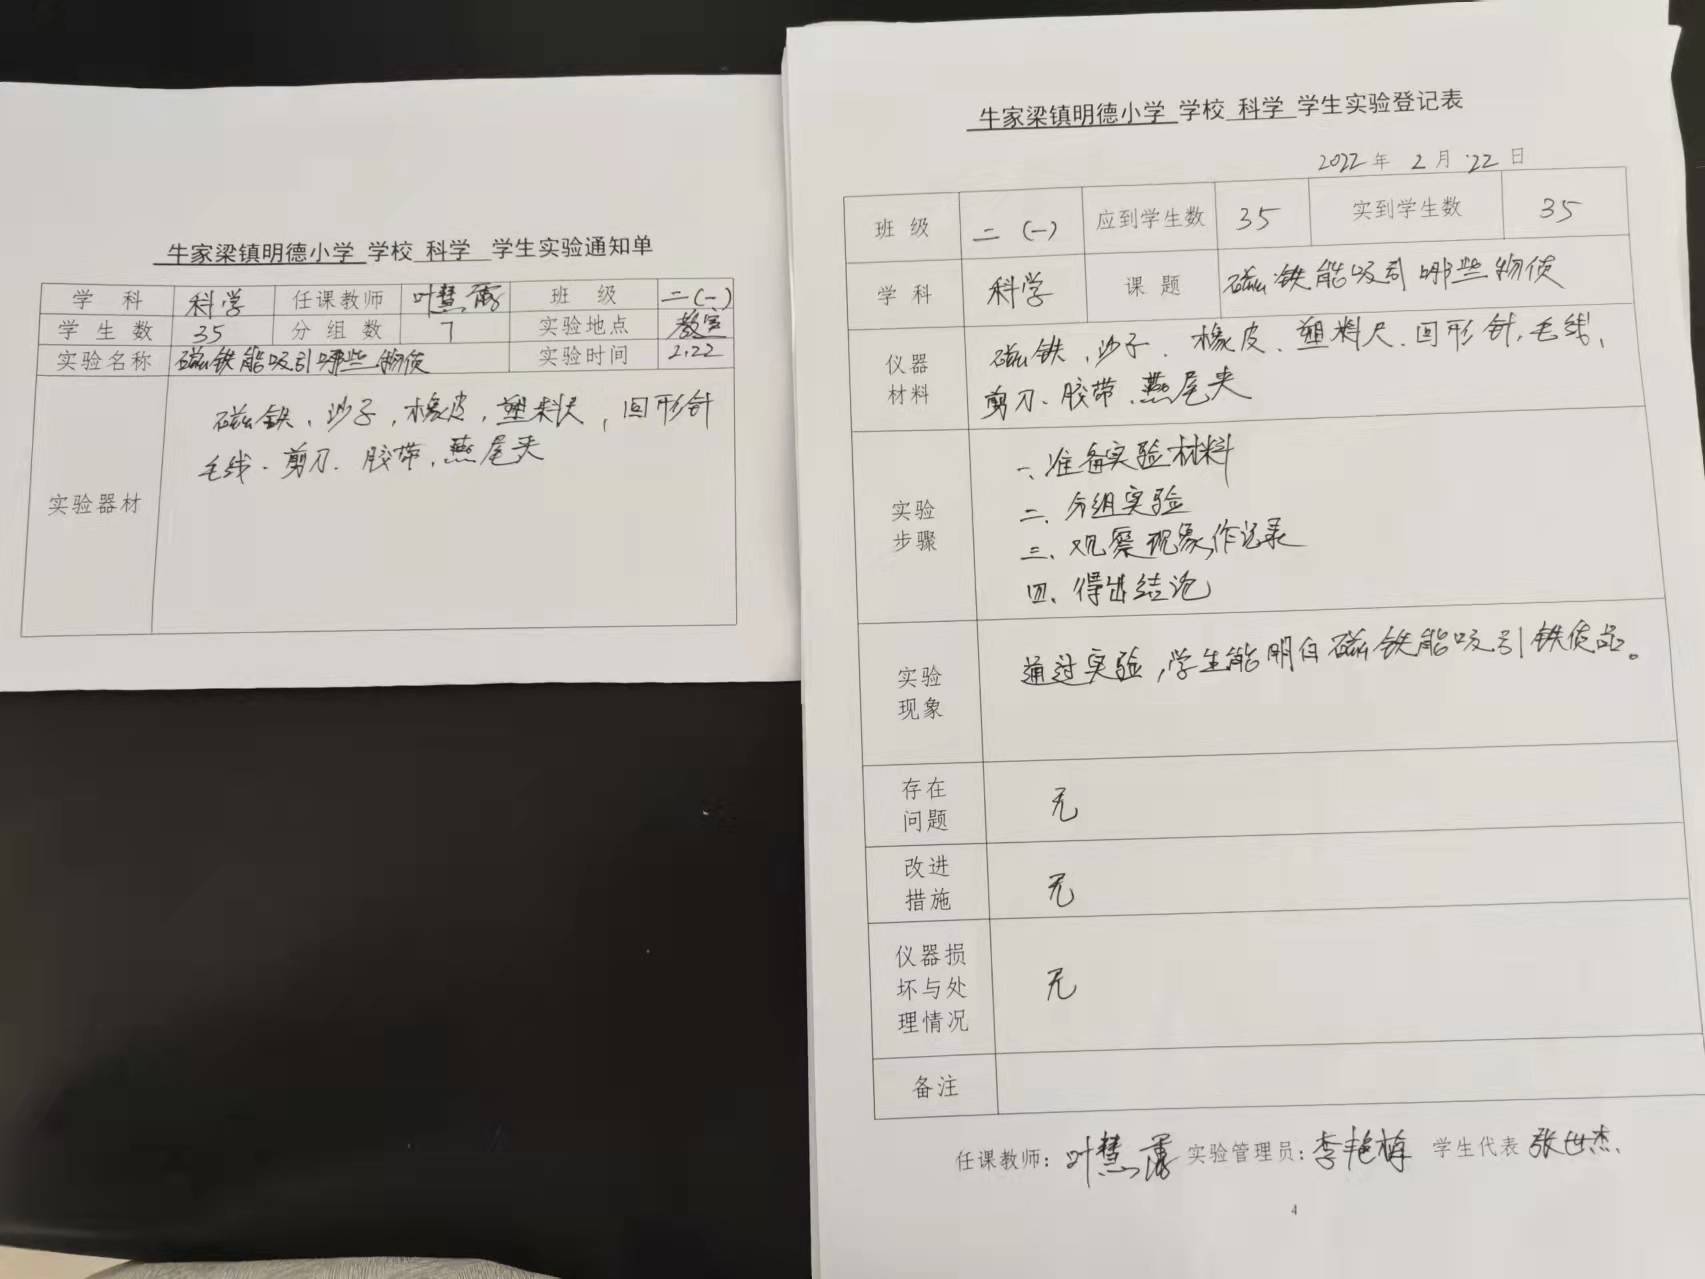 牛家梁镇明德小学 学校 科学 学生实验通知单
学 科 科学 任课教师 叶慧 班 级 二(一)
学 生 数 35 分 组 数 7 实验地点 教室
实验名称 磁铁能吸引哪些物质 实验时间 2.22
实验器材
磁铁、沙子,橡皮,塑料尺,回形针
毛线、剪刀、胶带、燕尾夹
牛家梁镇明德小学 学校 科学 学生实验登记表
2022 年 2 月 22 日
班 级 二(一) 应到学生数 35 实到学生数 35
学 科 科学 课 题 磁铁能吸引哪些物质
仪器
材料
磁铁、沙子、橡皮、塑料尺、回形针、毛线、
剪刀、胶带、燕尾夹
实验
步骤
一、准备实验材料
二、分组实验
三、观察现象,作记录
四、得出结论
实验
现象
通过实验,学生能明白磁铁能吸引铁质品。
存在
问题
无
改进
措施
无
仪器损
坏与处
理情况
无
备注
任课教师: 叶慧 实验管理员: 李艳梅 学生代表 张世杰
4